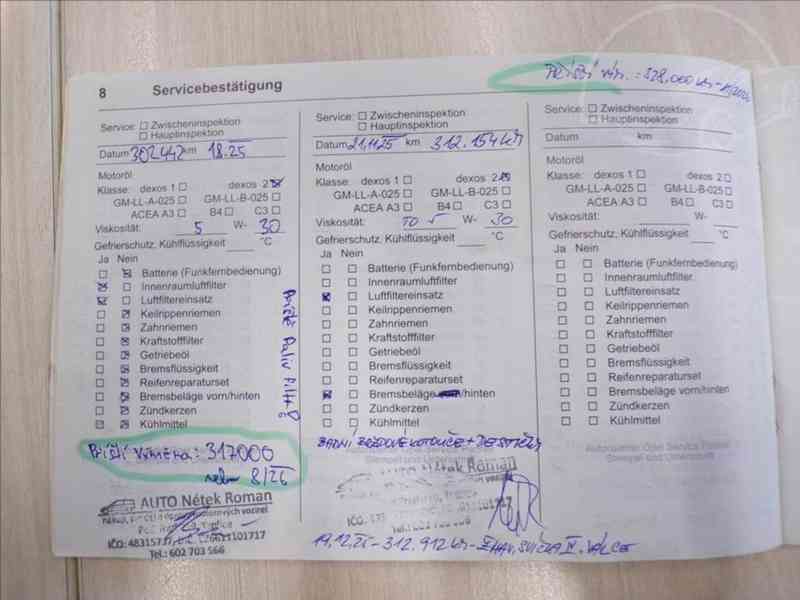 8 Servicebestätigung
PŘÍŠTÍ VÝM.: 328.000 km
Service: Zwischeninspektion
Hauptinspektion
Datum 302442 km 18.25
Motoröl
Klasse: dexos 1 dexos 2
GM-LL-A-025 GM-LL-B-025
ACEA A3 B4 C3
Viskosität: 5 W- 30
Gefrierschutz, Kühlflüssigkeit °C
Ja Nein
Batterie (Funkfernbedienung)
Innenraumluftfilter
Luftfiltereinsatz
Keilrippenriemen
Zahnriemen
Kraftstofffilter
Getriebeöl
Bremsflüssigkeit
Reifenreparaturset
Bremsbeläge vorn/hinten
Zündkerzen
Kühlmittel
PŘÍŠTÍ VÝMĚNA: 317000
nebo 8/26
AUTO Nétek Roman
Tel.: 602 703 566
Service: Zwischeninspektion
Hauptinspektion
Datum 21.11.25 km 312.154 km
Motoröl
Klasse: dexos 1 dexos 2
GM-LL-A-025 GM-LL-B-025
ACEA A3 B4 C3
Viskosität: TO 5 W- 30
Gefrierschutz, Kühlflüssigkeit °C
Ja Nein
Batterie (Funkfernbedienung)
Innenraumluftfilter
Luftfiltereinsatz
Keilrippenriemen
Zahnriemen
Kraftstofffilter
Getriebeöl
Bremsflüssigkeit
Reifenreparaturset
Bremsbeläge /hinten
Zündkerzen
Kühlmittel
ZADNÍ BRZDOVÉ KOTOUČE + DESTIČKY
Autorisierter Opel Service Partner
Stempel und Unterschrift
AUTO Nétek Roman
19.12.25 - 312.912 km - ŽHAV. SVÍČKA IV. VÁLCE
Service: Zwischeninspektion
Hauptinspektion
Datum km
Motoröl
Klasse: dexos 1 dexos 2
GM-LL-A-025 GM-LL-B-025
ACEA A3 B4 C3
Viskosität: W-
Gefrierschutz, Kühlflüssigkeit °C
Ja Nein
Batterie (Funkfernbedienung)
Innenraumluftfilter
Luftfiltereinsatz
Keilrippenriemen
Zahnriemen
Kraftstofffilter
Getriebeöl
Bremsflüssigkeit
Reifenreparaturset
Bremsbeläge vorn/hinten
Zündkerzen
Kühlmittel
Autorisierter Opel Service Partner
Stempel und Unterschrift